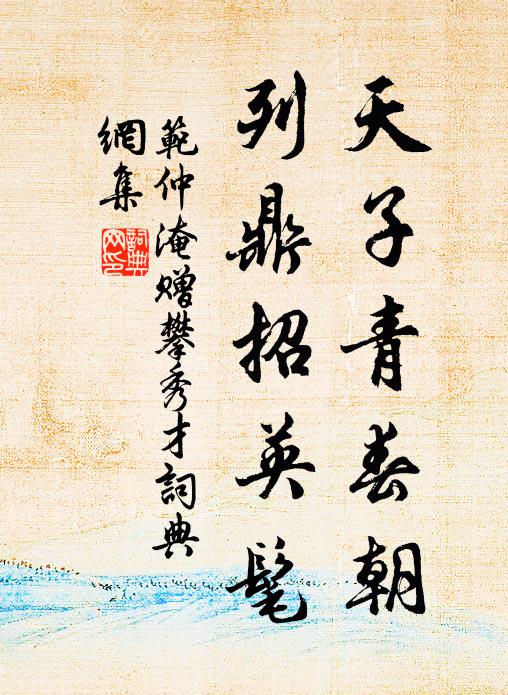 天子青春朝
列鼎招英髦
範仲淹贈樊秀才詞典
網集
詞典
网印